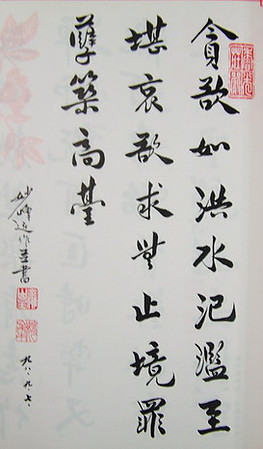 貪欲如洪水氾濫至
堪哀欲求無止境罪
孽築高臺
妙峰近作並書
九八.九.七.